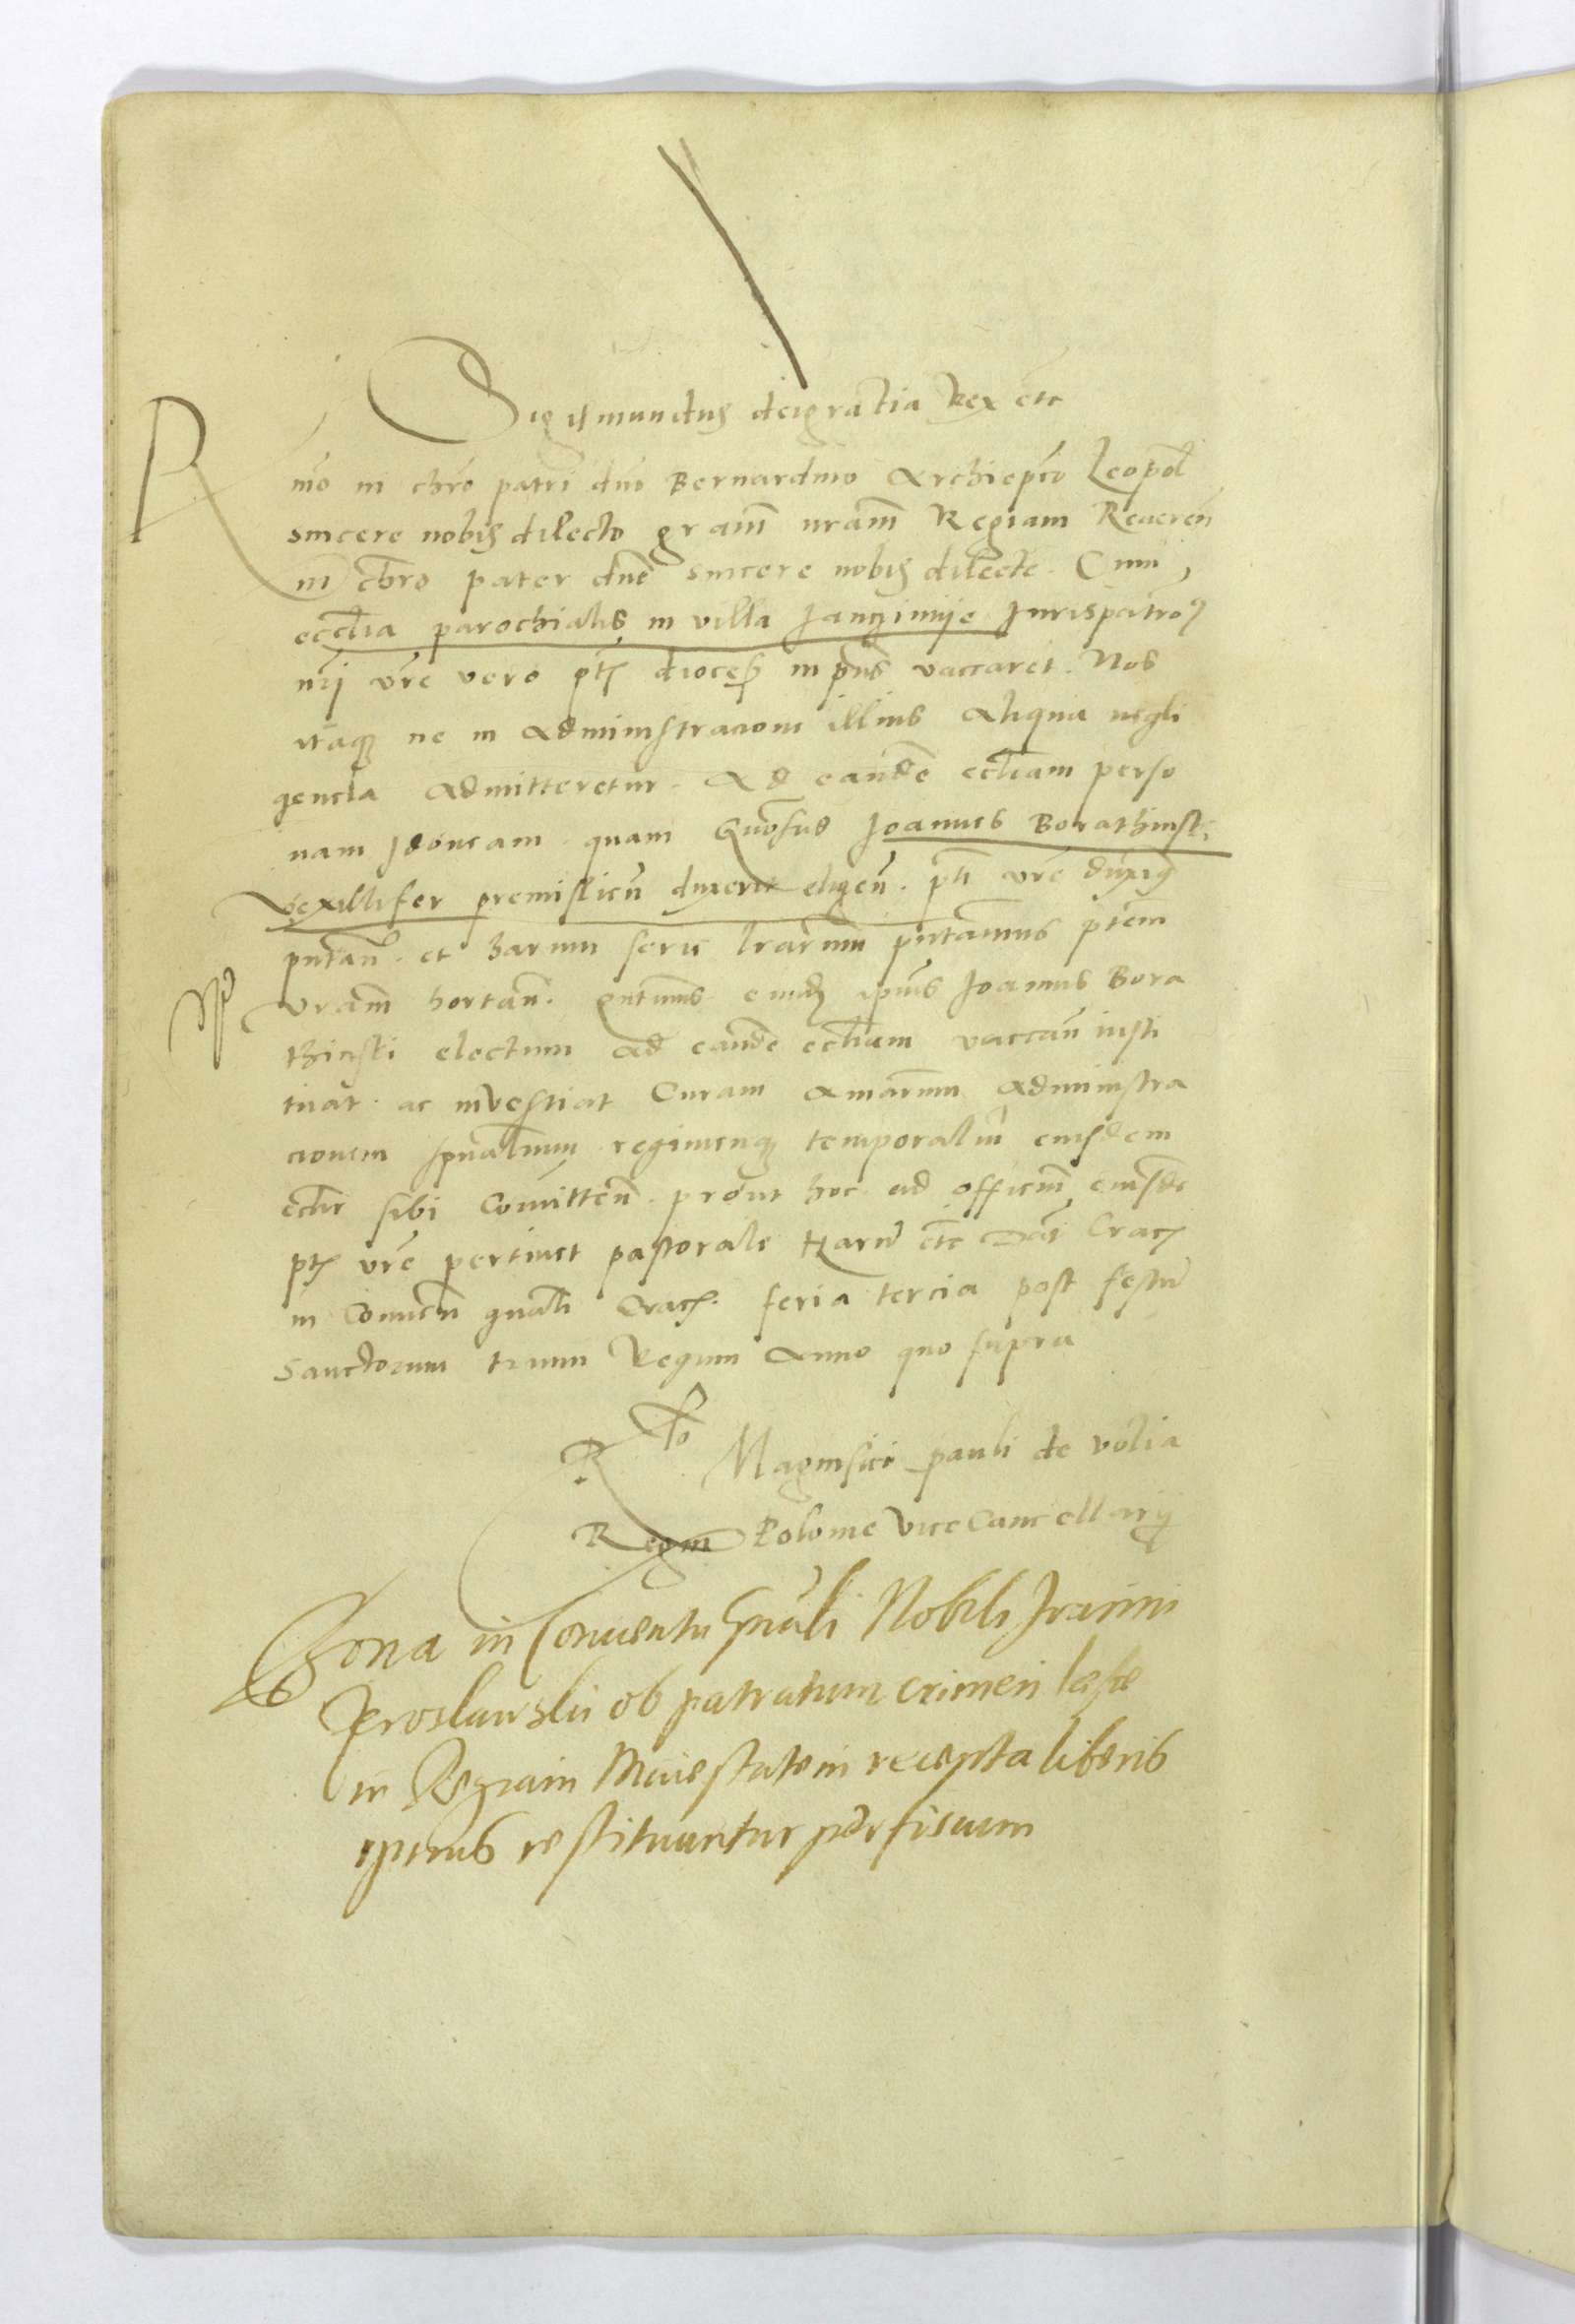 Sigismundus deigratia Rex etc
R mo in chro patri dno Bernardino Archiepco Leopol
sincere nobis dilecto gram nram Regiam Reveren
in chro pater dne sincere nobis dilecte. Cum
ecclia parochialis in villa Janczinije Jurispatro
nri vre vero ptis dioces in pns vaccaret. Nos
itaq ne in Administracioni illius Aliqua negli
gencia Admitteretur. Ad eande eccliam perso
nam Jdoneam. quam Gnosus Joannes Borathinsk
vexillifer premislien duxerit eligen. pti vre
pntan. et harum serie lrarum pntamus ptem
vram hortan. qntinus eund ipius Joannis Bora
thinski electum ad eande eccliam vaccan insti
tuat. ac investiat Curam Animarum Administra
cionem spualium regimenq temporaliu eiusdem
ecclie sibi Comitten. prout hoc ad officium eiusde
ptis vre pertinet pastorale haru etc Dat Crac
in Conven gnali Crac. feria tercia post festu
Sanctorum trium Regum Anno quo supra
R lo Magnifici pauli de volia
Regni Polonie Vice Cancellarij
Bona in Conventu gnali Nobili
Jeroslawskii ob patratum crimen lesae
in Regiam Maiestatem recepta liberis
ipsius restituuntur per fiscum